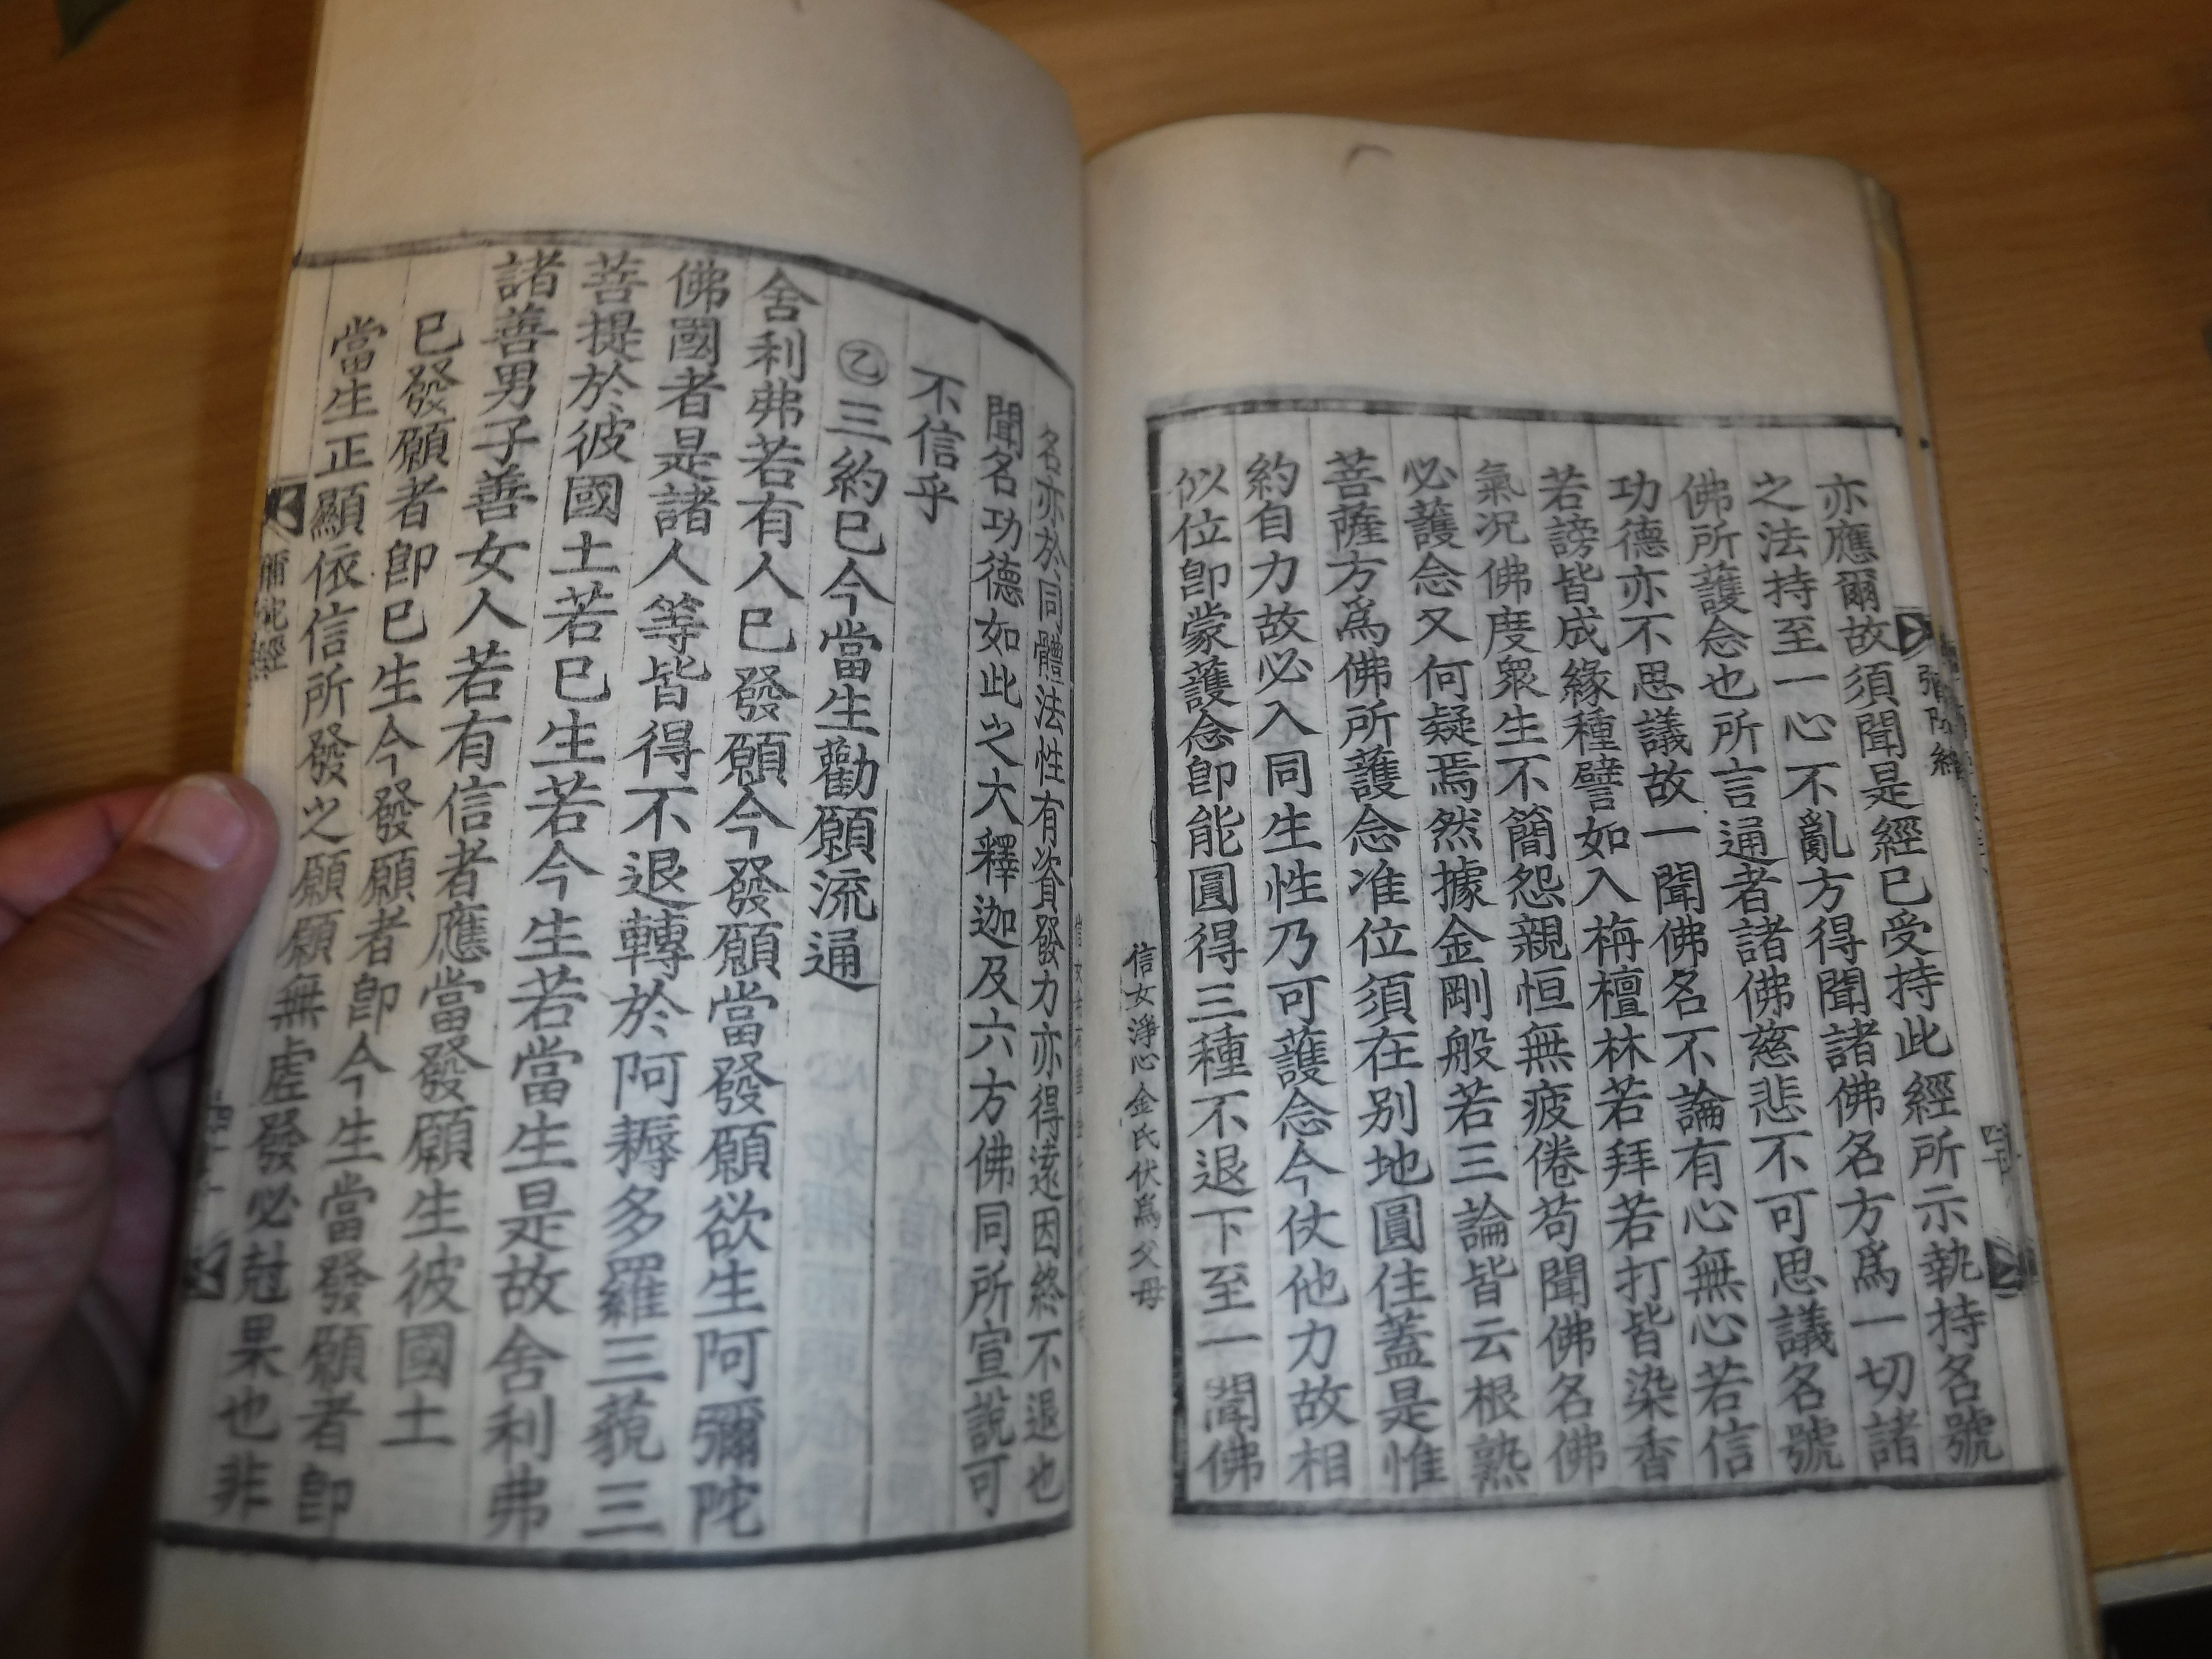 亦應爾故須聞是經已受持此經所示執持名號
之法持至一心不亂方得聞諸佛名方爲一切諸
佛所護念也所言通者諸佛慈悲不可思議名號
功德亦不思議故一聞佛名不論有心無心若信
若謗皆成緣種譬如入栴檀林若拜若打皆染香
氣況佛度眾生不簡怨親恒無疲倦苟聞佛名佛
必護念又何疑焉然據金剛般若三論皆云根熟
菩薩方爲佛所護念准位須在別地圓住蓋是惟
約自力故必入同生性乃可護念今仗他力故相
似位卽蒙護念卽能圓得三種不退下至一聞佛
信女淨心金氏伏爲父母
名亦於同體法性有資發力亦得遠因終不退也
聞名功德如此之大釋迦及六方佛同所宣說可
不信乎
㊁三約已今當生勸願流通
舍利弗若有人已發願今發願當發願欲生阿彌陀
佛國者是諸人等皆得不退轉於阿耨多羅三藐三
菩提於彼國土若已生若今生若當生是故舍利弗
諸善男子善女人若有信者應當發願生彼國土
已發願者卽已生今發願者卽今生當發願者卽
當生正顯依信所發之願願無虛發必尅果也非